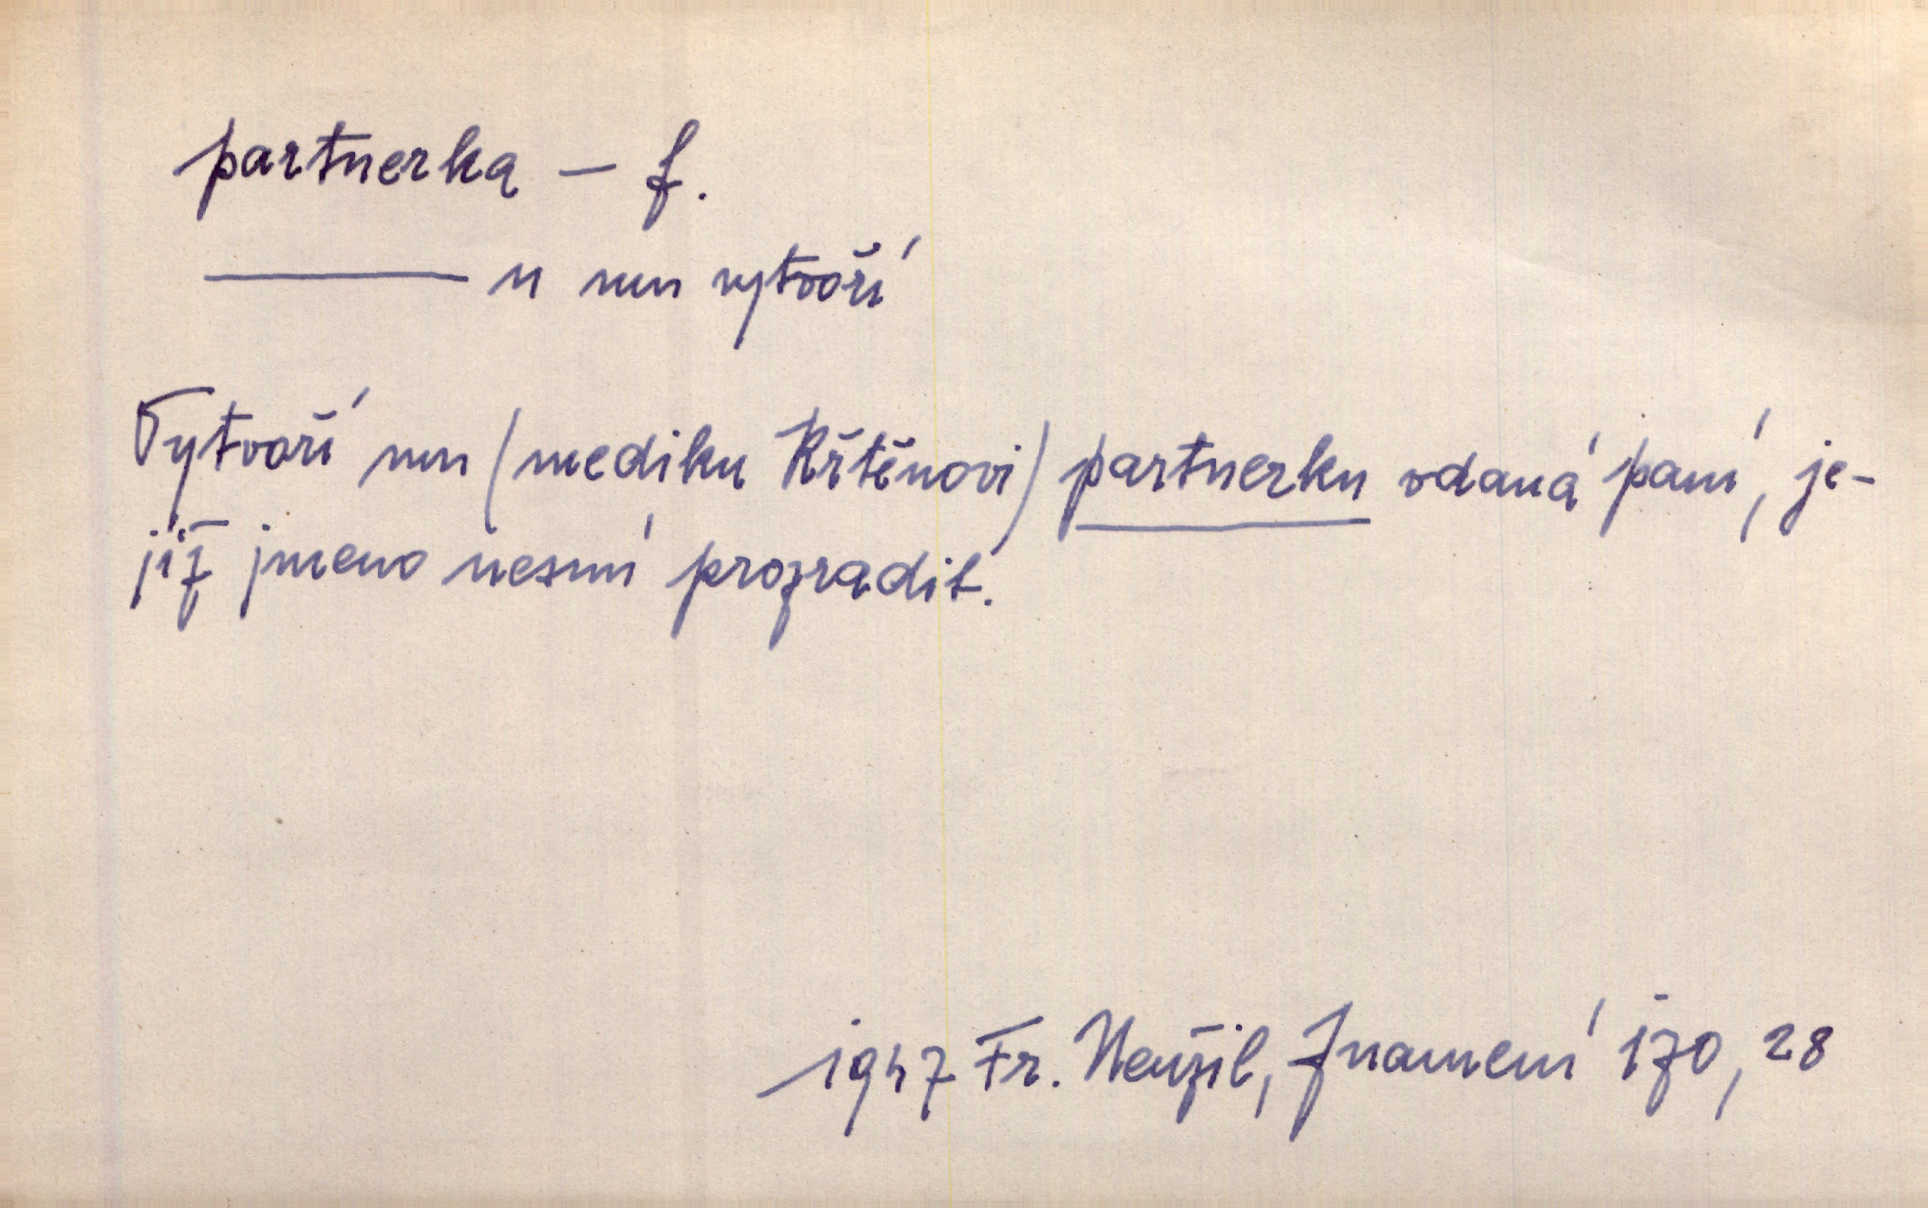 partnerka – f.
——— u mu vytvoří
Vytvoří mu (mediku Křtěnovi) partnerku vdaná paní, je-
jíž jmeno nesmí prozradit.
1947 Fr. Neužil, Znamení 170, 28